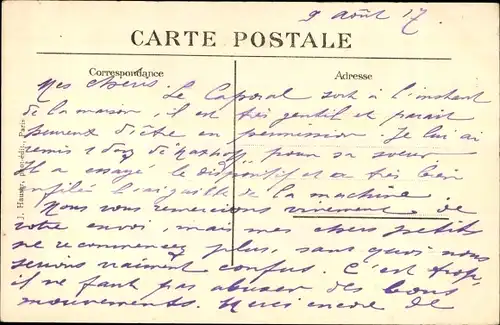 9 août 17
CARTE POSTALE
Correspondance
Adresse
Mes chers. Le Caporal sort à l'instant
de la maison, il est très gentil et parait
heureux d'être en permission. Je lui ai
remis 1 pour sa soeur,
Il a essayé le dispositif et a très bien
enfilé l'aiguille de la machine
Nous vous remercions vivement de
votre envoi, mais mes chers petits
ne recommencez plus, sans quoi nous
serions vraiment confus. C'est trop,
il ne faut pas abuser des bons
mouvements. Merci encore de
J. Hauser, Phot-édit., Paris